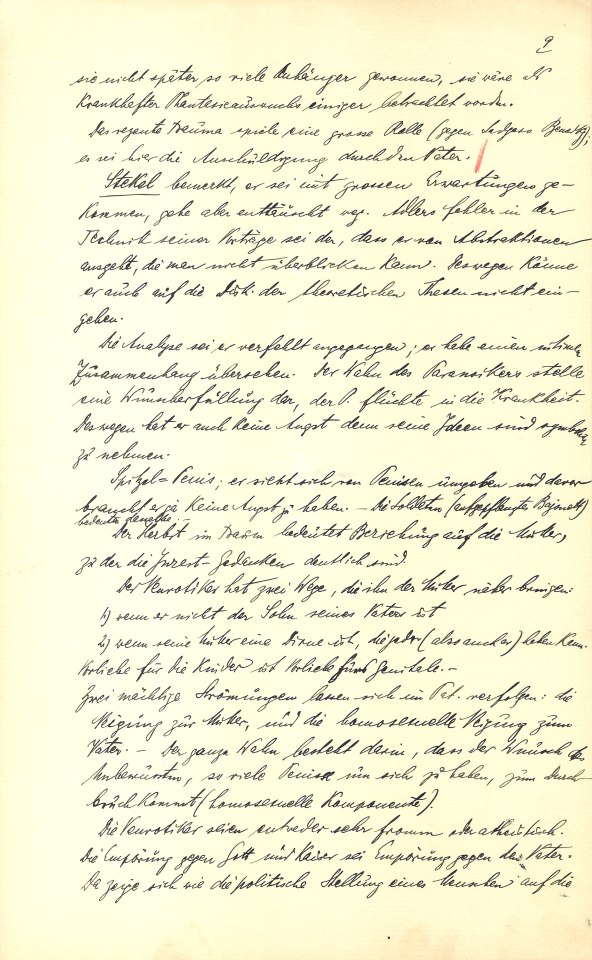 9
sie nicht später so viele Anhänger gewonnen, sie wäre als
krankhafter Phantasieauswuchs einiger betrachtet worden.
Das rezente Trauma spiele eine grosse Rolle (gegen
es sei hier die Anschuldigung durch den Vater.
Stekel bemerkt, er sei mit grossen Erwartungen ge-
kommen, gehe aber enttäuscht weg. Adlers Fehler in der
Technik seiner Vorträge sei der, dass er von Abstraktionen
ausgeht, die man nicht überblicken kann. Deswegen könne
er auch auf die Disk. der theoretischen Thesen nicht ein-
gehen.
Die Analyse sei er verfehlt angegangen; er habe einen intimen
Zusammenhang übersehen. Der Wahn des Paranoikers stelle
eine Wunscherfüllung dar, der P. flüchte in die Krankheit.
Deswegen hat er auch keine Angst denn seine Ideen sind symbolisch
zu nehmen.
Spitzel = Penis; er sieht sich von Penisen umgeben und davor
braucht er ja keine Angst zu haben. - Die Soldaten (aufgepflanztes Bajonett)
bedeuten dasselbe. -
Der Herbst im Traum bedeutet Beziehung auf die Mutter,
zu der die Inzest-Gedanken deutlich sind.
Der Neurotiker hat zwei Wege, die ihn der Mutter näher bringen:
1) wenn er nicht der Sohn seines Vaters ist
2) wenn seine Mutter eine Dirne ist, die jeder (also auch er) haben kann.
Vorliebe für die Kinder ist Vorliebe fürs Genitale. -
Zwei mächtige Strömungen lassen sich im Pat. verfolgen: die
Neigung zur Mutter, und die homosexuelle Neigung zum
Vater. - Der ganze Wahn besteht darin, dass der Wunsch des
Unbewussten, so viele Penise um sich zu haben, zum Durch-
bruch kommt (homosexuelle Komponente).
Die Neurotiker seien entweder sehr fromm oder atheistisch.
Die Empörung gegen Gott und Kaiser sei Empörung gegen den Vater.
Da zeige sich wie die politische Stellung eines Menschen auf die